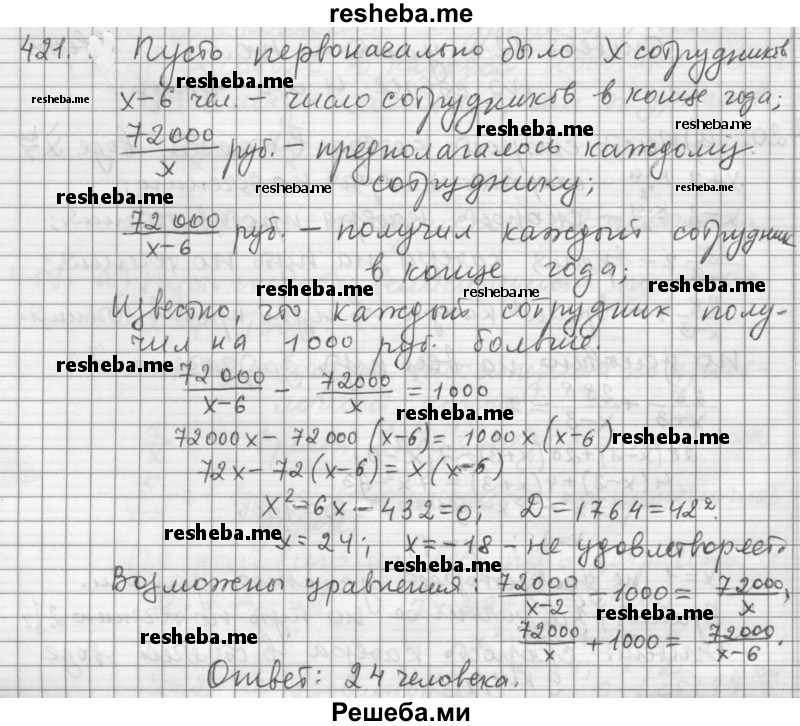 resheba.me
421. Пусть первоначально было x сотрудников
resheba.me
resheba.me x-6 чел. - число сотрудников в конце года;
resheba.me resheba.me
72000/x руб. - предполагалось каждому
resheba.me resheba.me resheba.me
сотруднику;
72000/(x-6) руб. - получил каждый сотрудник
в конце года;
resheba.me resheba.me resheba.me
Известно, что каждый сотрудник полу-
чил на 1000 руб. больше.
resheba.me
72000/(x-6) - 72000/x = 1000
resheba.me
72000x - 72000(x-6) = 1000x(x-6)
resheba.me
72x - 72(x-6) = x(x-6)
x²-6x-432=0; D=1764=42².
resheba.me
x=24; x=-18 - не удовлетворяет.
resheba.me
Возможны уравнения: 72000/(x-2) - 1000 = 72000/x,
resheba.me
resheba.me
72000/x + 1000 = 72000/(x-6).
Ответ: 24 человека.
Решеба.ми